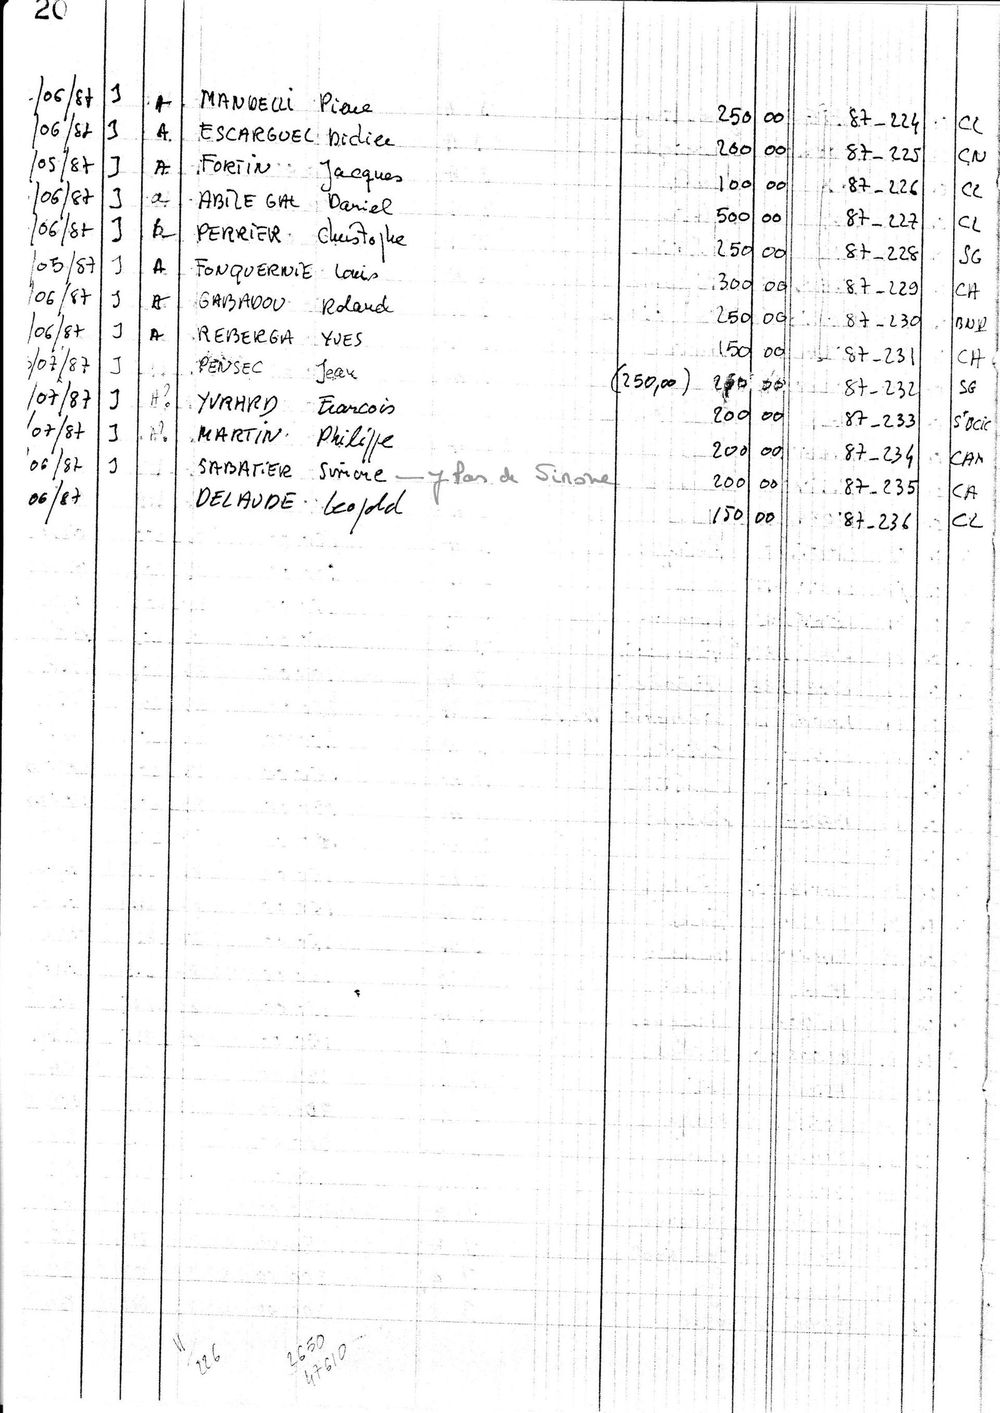 20
/06/87 J A MANDELLI Pierre 250 00 87-224 CL
/06/87 J A ESCARGUEL Didier 200 00 87-225 CN
/05/87 J A FORTIN Jacques 100 00 87-226 CL
/06/87 J a ABIZEGAL Daniel 500 00 87-227 CL
/06/87 J PERRIER Christophe 250 00 87-228 SG
/05/87 J A FONQUERNIE Louis 300 00 87-229 CA
/06/87 J A GABADOU Roland 250 00 87-230 BNP
/06/87 J A REBERGA YVES 150 00 87-231 CA
/07/87 J PENSEC Jean (250,00) 00 87-232 SG
/07/87 J A? YVRARD Francois 200 00 87-233
/07/87 J A? MARTIN Philippe 200 00 87-234 CAM
/06/87 J SABATIER Simone Pas de Simone 200 00 87-235 CA
06/87 DELAUDE Leopold 150 00 87-236 CL
226 2650
47610